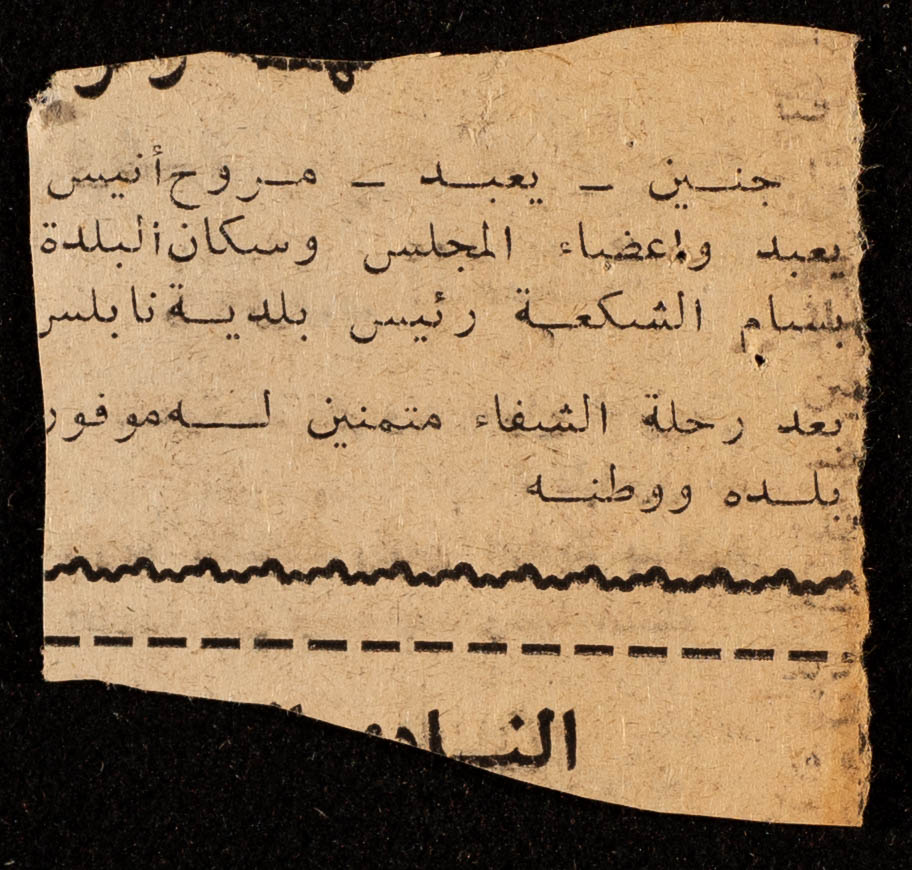 جنين - يعبد - مروح أنيس
يعبد واعضاء المجلس وسكان البلدة
بسام الشكعة رئيس بلدية نابلس
بعد رحلة الشفاء متمنين له موفور
بلده ووطنه